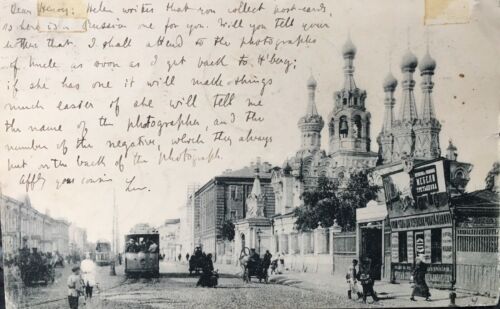 Dear Henry: Helen writes that you collect post-cards,
so here is a Russian one for you. Will you tell your
mother that I shall attend to the photographs
of Uncle as soon as I get back to H'berg;
if she has one it will make things
much easier if she will tell me
the name of the photographer, and the
number of the negative, which they always
put on the back of the photograph.
Affly your cousin
МЕБЕЛИ
ТРЕТЬЯКОВЪ